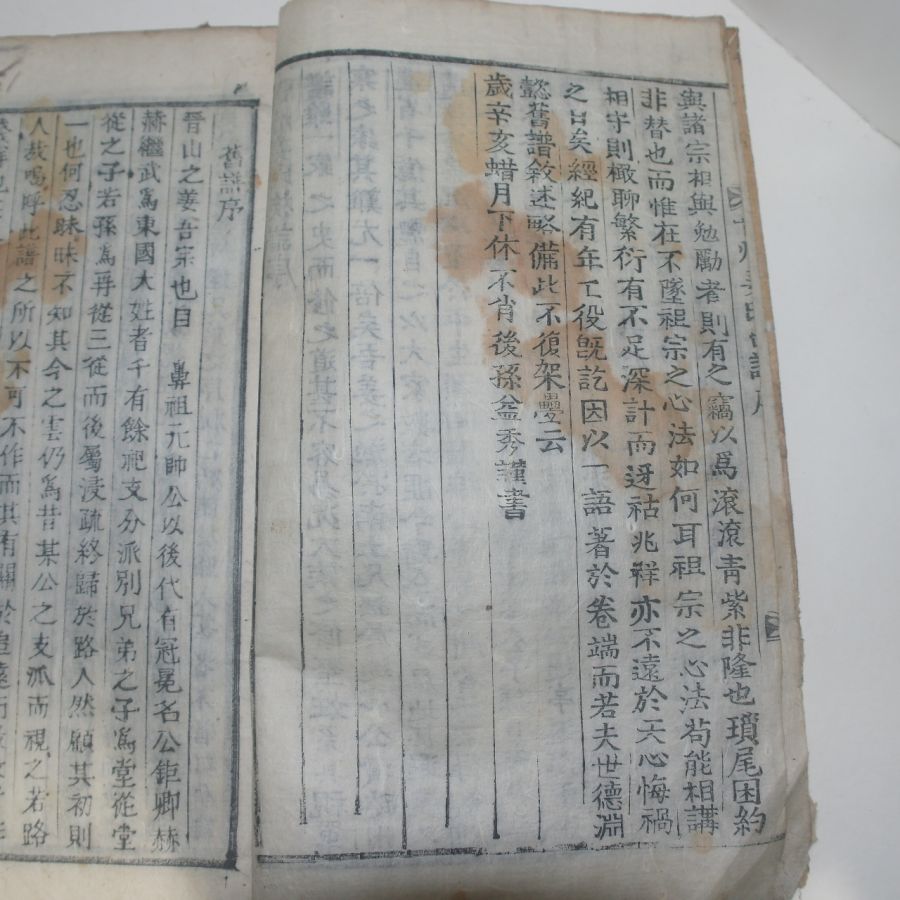 與諸宗相與勉勵者則有之竊以爲滾滾靑紫非隆也瑣尾困約
非替也而惟在不墜祖宗之心法如何耳祖宗之心法苟能相講
相守則椒聊繁衍有不足深計而迓祜兆祥亦不遠於天心悔禍
之日矣經紀有年工役旣訖因以一語著於卷端而若夫世德淵
懿舊譜敘述略備此不復架疊云
歲辛亥蜡月下休不肖後孫 秀謹書
舊譜序
晉山之姜吾宗也自 鼻祖元帥公以後代有冠冕名公鉅卿赫
赫繼武爲東國大姓者千有餘祀支分派別兄弟之子爲堂從堂
從之子若孫爲再從三從而後屬浸疏終歸於路人然顧其初則
一也何忍昧昧不知其今之雲仍爲昔某公之支派而視之若路
人哉嗚呼此譜之所以不可不作而其有關於追遠而